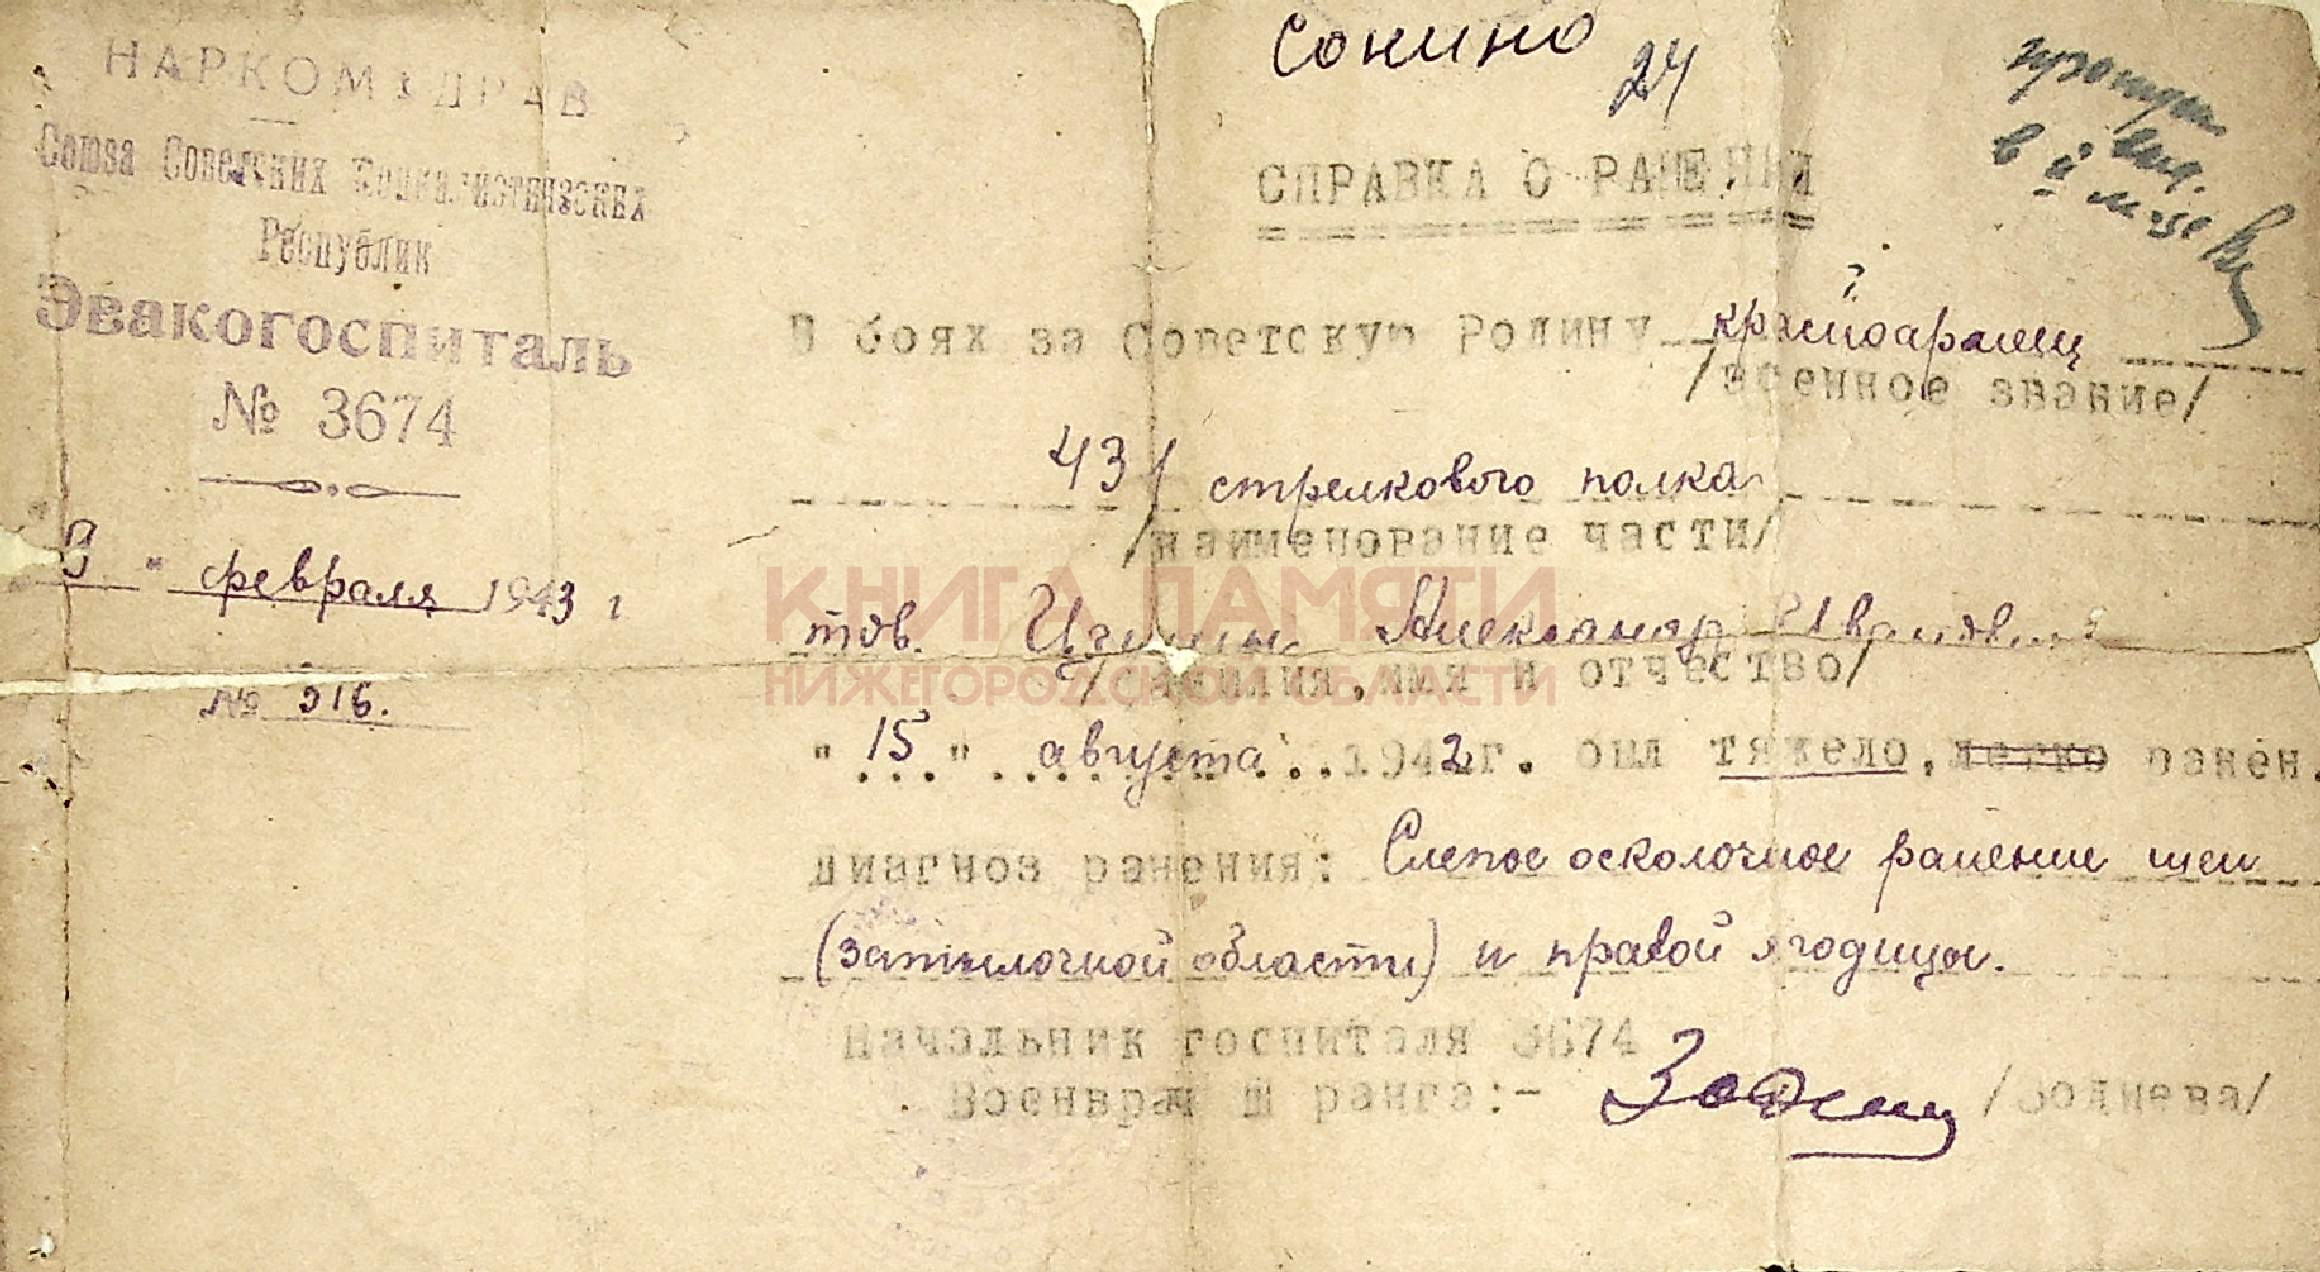 НАРКОМЗДРАВ
Союза Советских Социалистических
Республик
Эвакогоспиталь
№ 3674
3 " февраля 1943 г
№ 316.
Сонино
24
СПРАВКА О РАНЕНИИ
В боях за Советскую Родину красноармеец
/военное звание/
431 стрелкового полка
/наименование части/
КНИГА ПАМЯТИ
тов. Александр
НИЖЕГОРОДСКОЙ ОБЛАСТИ
/фамилия, имя и отчество/
" 15 " августа 1942 г. был тяжело, легко ранен.
диагноз ранения: Слепое осколочное ранение шеи
(затылочной области) и правой ягодицы.
Начальник госпиталя 3674
Военврач III ранга:- /Зоднева/